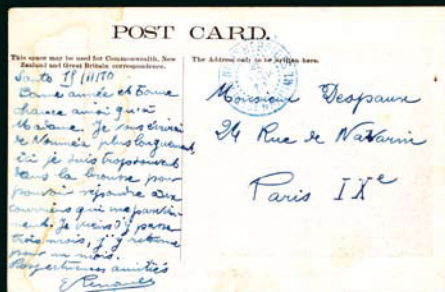 POST CARD.
This space may be used for Commonwealth, New
Zealand and Great Britain correspondence.
The Address only to be written here.
Santo
Bonne année et bonne
chance ainsi qu'à
Madame. Je vous écrirai
de Nouméa plus longuement
ici je suis trop souvent
dans la brousse pour
pouvoir répondre aux
courriers qui me parvien-
nent. Je viens d'y passer
trois mois, j'y retourne
pour un mois.
Respectueuses amitiés
Monsieur Despaux
24 Rue de Navarin
Paris IXe